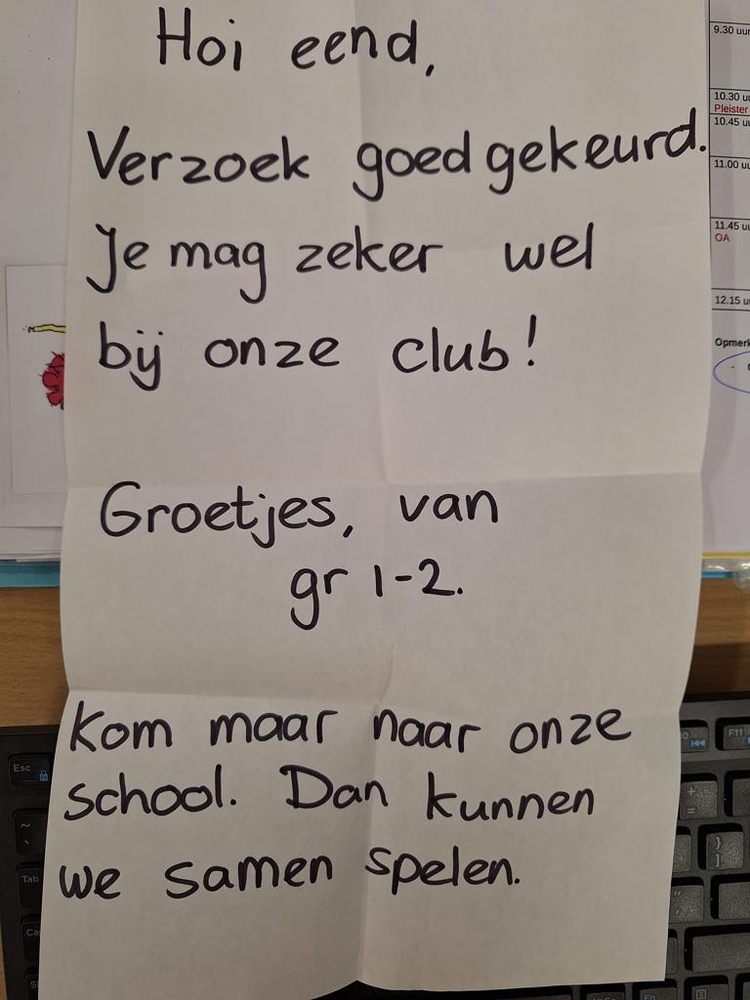 Hoi eend,
Verzoek goedgekeurd.
Je mag zeker wel
bij onze club!
Groetjes, van
gr 1-2.
Kom maar naar onze
school. Dan kunnen
we samen spelen.
9.30 uur
10.30 uu
Pleister
10.45 uu
11.00 uu
11.45 uu
OA
12.15 uu
Opmerk
Esc
Tab
F11